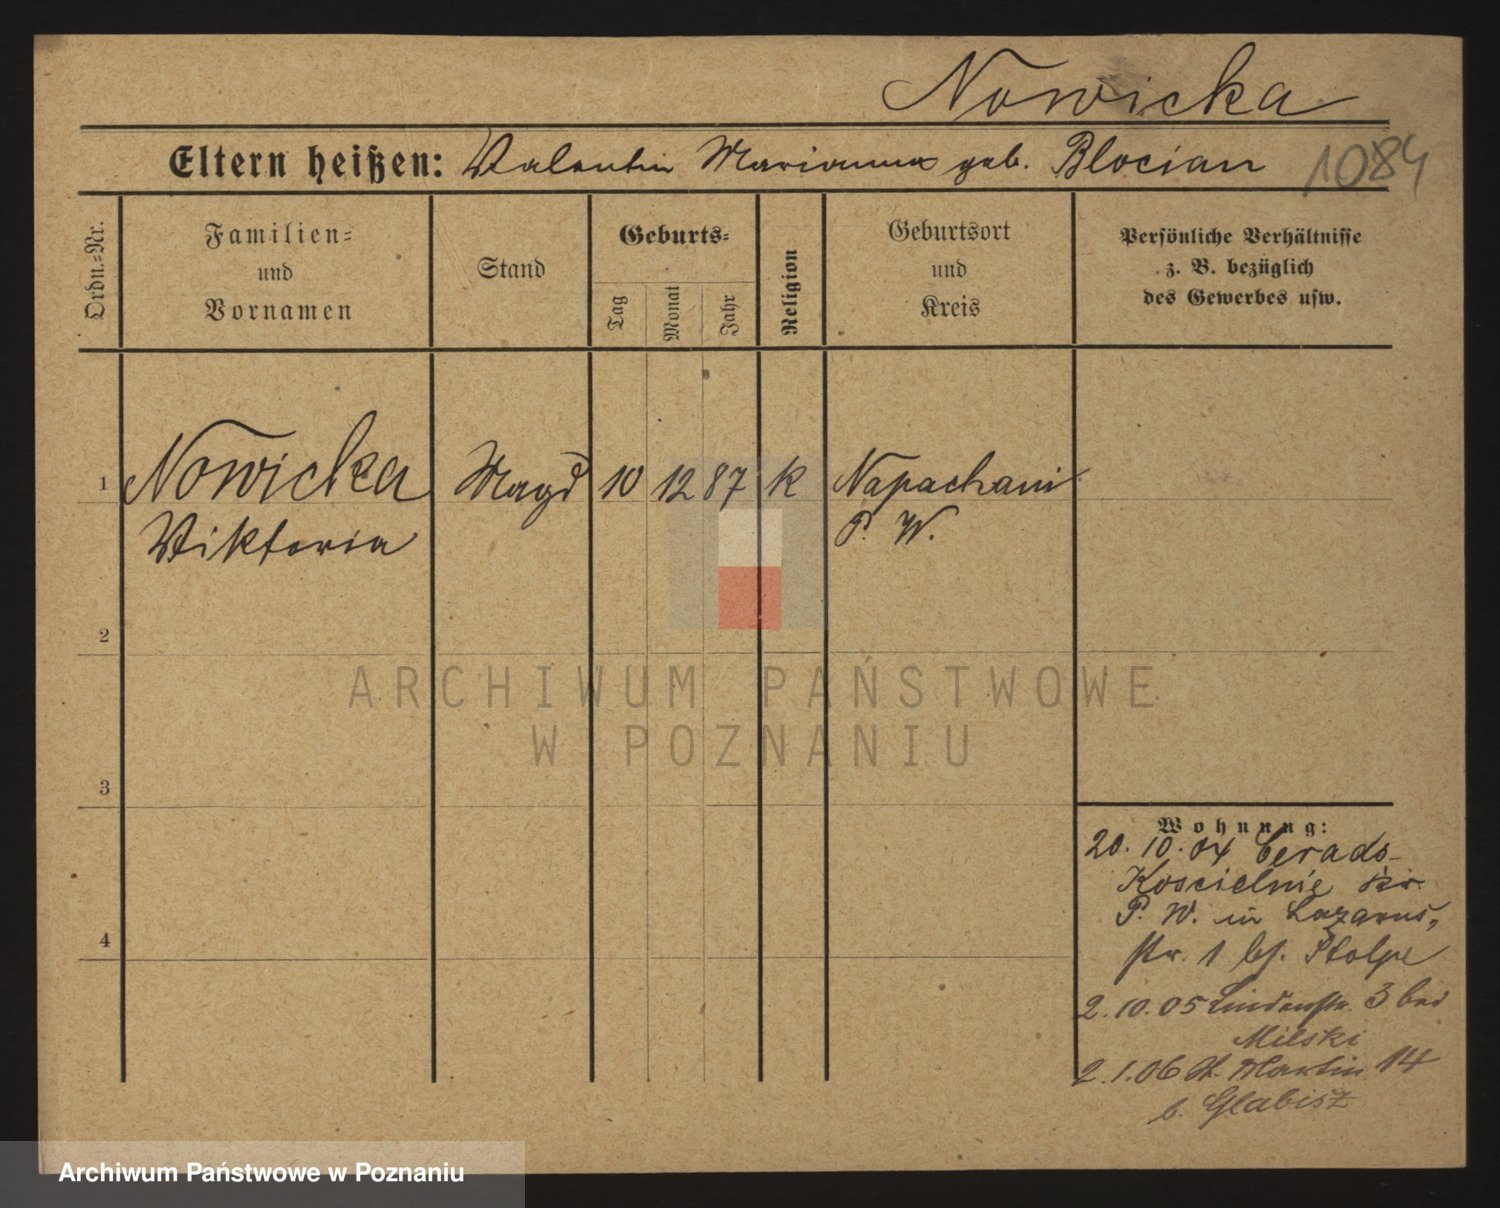 Nowicka
Eltern heißen: Valentin Marianna geb. Blocian 1084
Ordn.-Nr.
Familien-
und
Vornamen
Stand
Geburts-
Tag
Monat
Jahr
Religion
Geburtsort
und
Kreis
Persönliche Verhältnisse
z. B. bezüglich
des Gewerbes usw.
1 Nowicka Magd 10 12 87 k Napachani
Viktoria P. W.
2
3
4
ARCHIWUM PAŃSTWOWE
W POZNANIU
Wohnung:
20. 10. 04 Cerads-
Koscielnie Kr.
P. W. in Lazarus-
str. 1 bs. Stolpe
2. 10. 05 Lindenstr. 3 bei
Milski
2. 1. 06 St. Martin 14
b. Glabisz
Archiwum Państwowe w Poznaniu